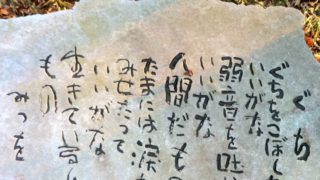 ぐち
ぐちをこぼした
いいがな
弱音を吐
いいがな
人間だもの
たまには涙
みせたって
いいがな
生きてい
もの
みつを